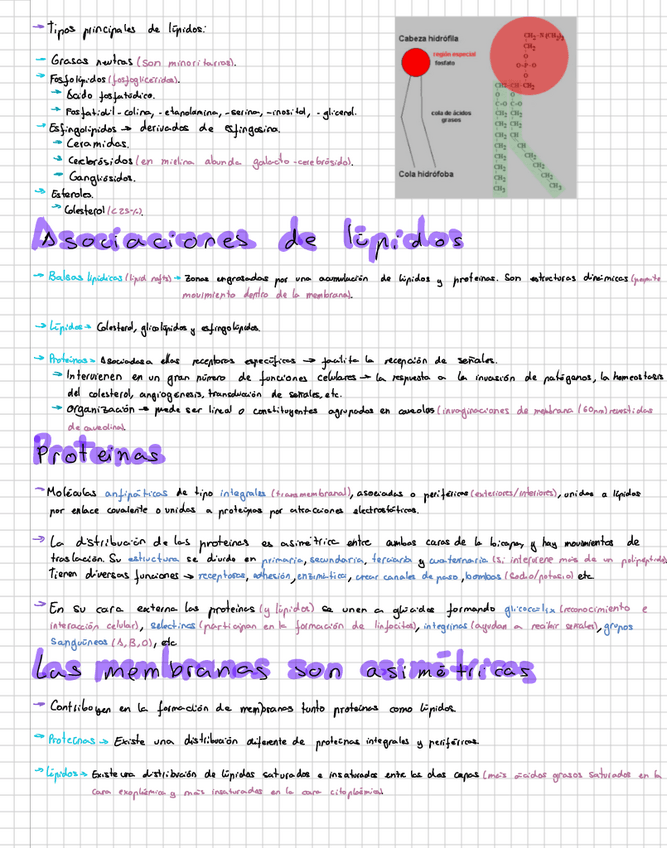 → Tipos principales de lípidos:
→ Grasas neutras (son minoritarios).
→ Fosfolípidos (fosfoglicéridos).
→ Ácido fosfatídico.
→ Fosfatidil-colina, -etanolamina, -serina, -inositol, -glicerol.
→ Esfingolípidos → derivados de esfingosina.
→ Ceramidas.
→ Cerebrósidos (en mielina abunda galacto-cerebrósido).
→ Gangliósidos.
→ Esteroles.
→ Colesterol (<25%).
Cabeza hidrófila
región especial
fosfato
cola de ácidos
grasos
Cola hidrófoba
CH₂-N(CH₃)₃
CH₂
O
O-P-O
O
CH₂-CH-CH₂
O O
C=O C=O
CH₂ CH₂
CH₂ CH₂
CH₂ CH₂
CH₂ CH
CH₂ CH
CH₂ CH₂
CH₂ CH₂
CH₂ CH₂
CH₃ CH₃
Asociaciones de lípidos
→ Balsas lipídicas (lipid rafts) → Zonas engrosadas por una acumulación de lípidos y proteínas. Son estructuras dinámicas (permite
movimiento dentro de la membrana).
→ Lípidos → Colesterol, glicolípidos y esfingolípidos.
→ Proteínas → Asociadas a ellas receptores específicos → facilita la recepción de señales.
→ Intervienen en un gran número de funciones celulares → la respuesta a la invasión de patógenos, la homeostasis
del colesterol, angiogénesis, transducción de señales, etc.
→ Organización → puede ser lineal o constituyentes agrupados en caveolas (invaginaciones de membrana (60nm) revestidas
de caveolina).
Proteínas
→ Moléculas anfipáticas de tipo integrales (transmembranal), asociadas o periféricas (exteriores/interiores), unidas a lípidos
por enlace covalente o unidos a proteínas por atracciones electrostáticas.
→ La distribución de las proteínas es asimétrica entre ambas caras de la bicapa, y hay movimientos de
traslación. Su estructura se divide en primaria, secundaria, terciaria y cuaternaria (si interviene más de un polipéptido).
Tienen diversas funciones → receptoras, adhesión, enzimática, crear canales de paso, bombas (sodio/potasio) etc.
→ En su cara externa las proteínas (y lípidos) se unen a glúcidos formando glicocálix (reconocimiento e
interacción celular), selectinas (participan en la formación de linfocitos), integrinas (ayudan a recibir señales), grupos
sanguíneos (A, B, O), etc
Las membranas son asimétricas
→ Contribuyen en la formación de membranas tanto proteínas como lípidos.
→ Proteínas → Existe una distribución diferente de proteínas integrales y periféricas.
→ Lípidos → Existe una distribución de lípidos saturados e insaturados entre las dos capas (más ácidos grasos saturados en la
cara exoplásmica y más insaturados en la cara citoplásmica)